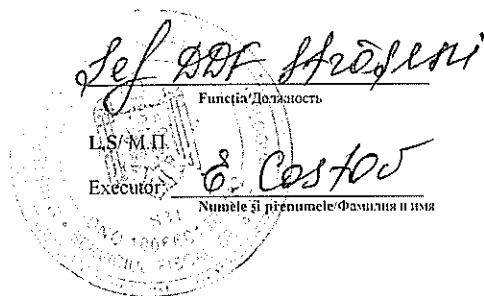 Șef DDF Strășeni
Funcția/Должность
L.S/М.П.
Executor: E. Costov
Numele și prenumele/Фамилия и имя